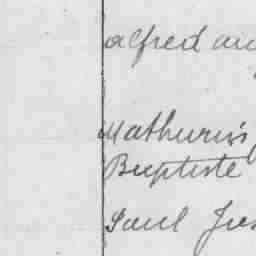 alfred au
Mathurin
Baptiste
Paul Jos